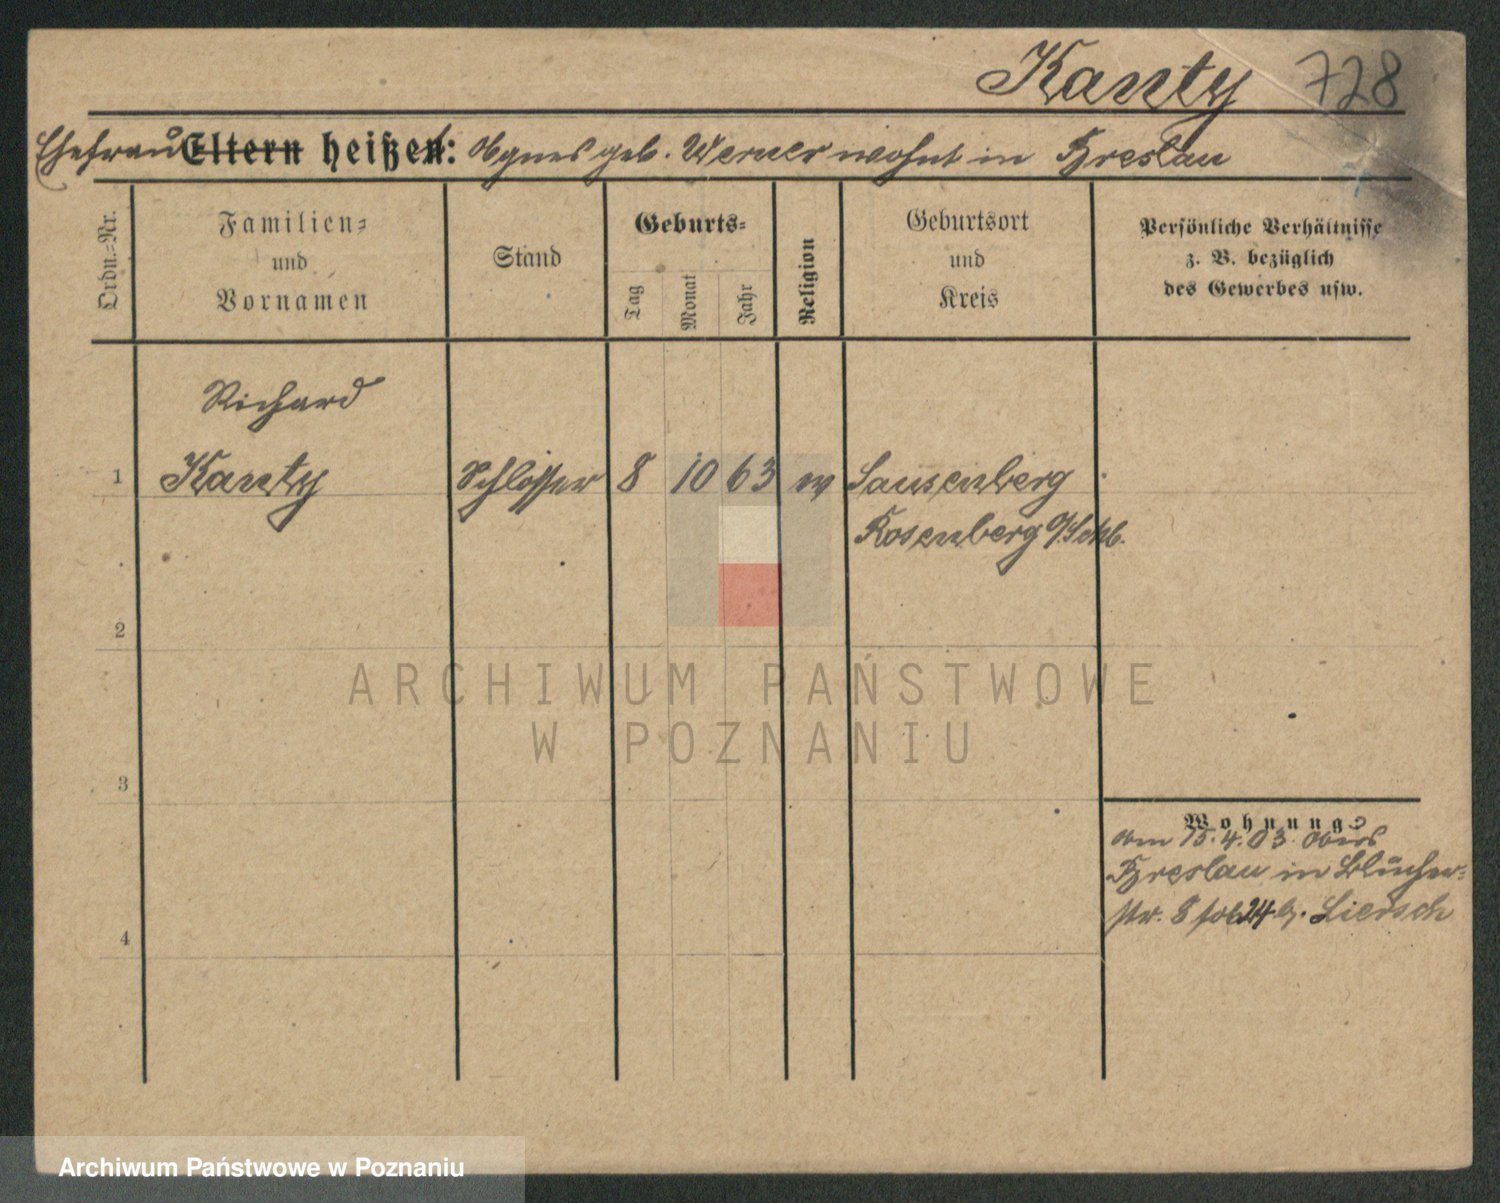 Kanty 728
Ehefrau Eltern heißen: Agnes geb. Werner wohnt in Breslau
Ordn.-Nr.
Familien-
und
Vornamen
Stand
Geburts-
Tag
Monat
Jahr
Religion
Geburtsort
und
Kreis
Persönliche Verhältnisse
z. B. bezüglich
des Gewerbes usw.
Richard
1 Kanty Schlosser 8 10 63 Sausenberg
Rosenberg O/Schl.
2
3
4
Wohnung
am 15.4.03. aus
Breslau in Blücher-
str. 8 24 b. Liersch
ARCHIWUM PAŃSTWOWE
W POZNANIU
Archiwum Państwowe w Poznaniu